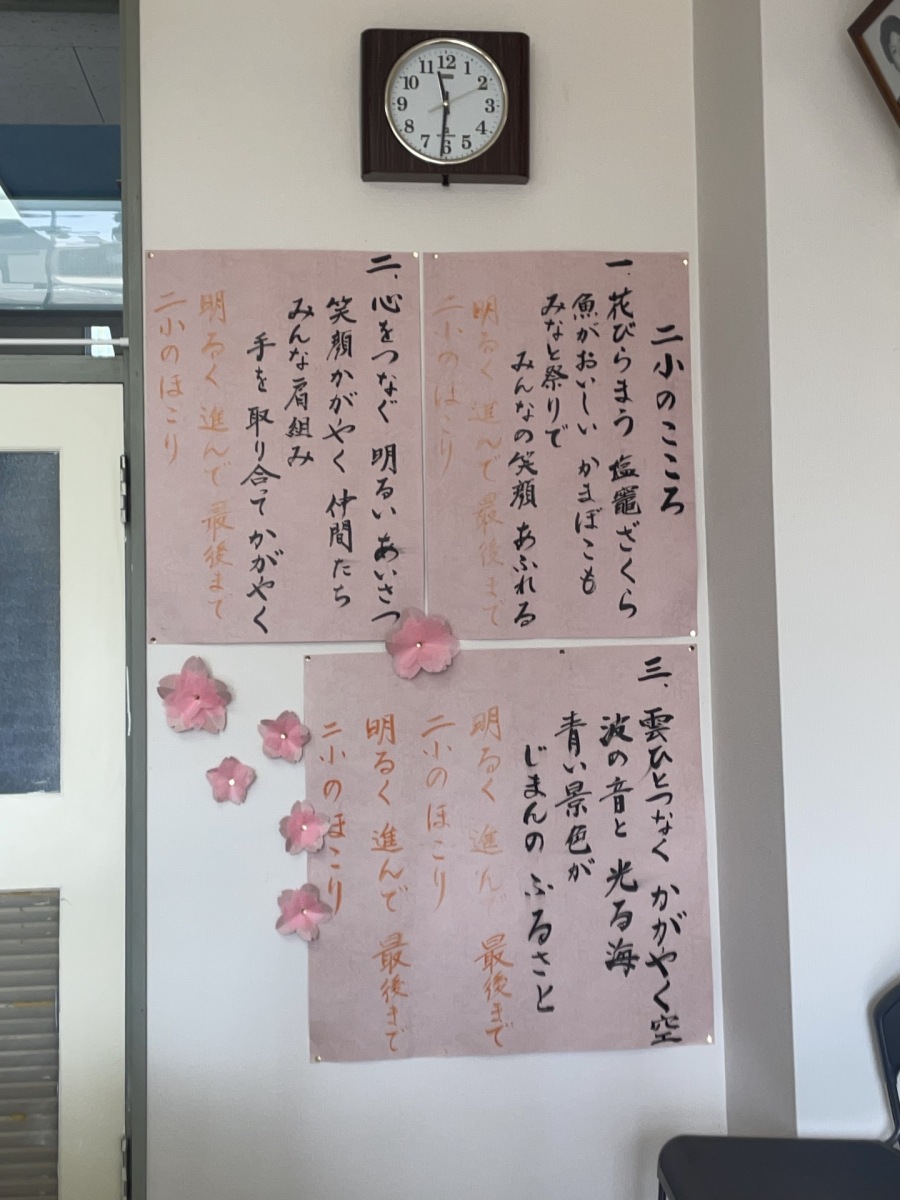 12
1
2
3
4
5
6
7
8
9
10
11
二小のこころ
一、花びらまう 塩竈ざくら
魚がおいしい かまぼこも
みなと祭りで
みんなの笑顔 あふれる
明るく 進んで 最後まで
二小のほこり
二、心をつなぐ 明るい あいさつ
笑顔かがやく 仲間たち
みんな肩組み
手を 取り合って かがやく
明るく 進んで 最後まで
二小のほこり
三、雲ひとつなく かがやく空
波の音と 光る海
青い景色が
じまんの ふるさと
明るく 進んで 最後まで
二小のほこり
明るく 進んで 最後まで
二小のほこり